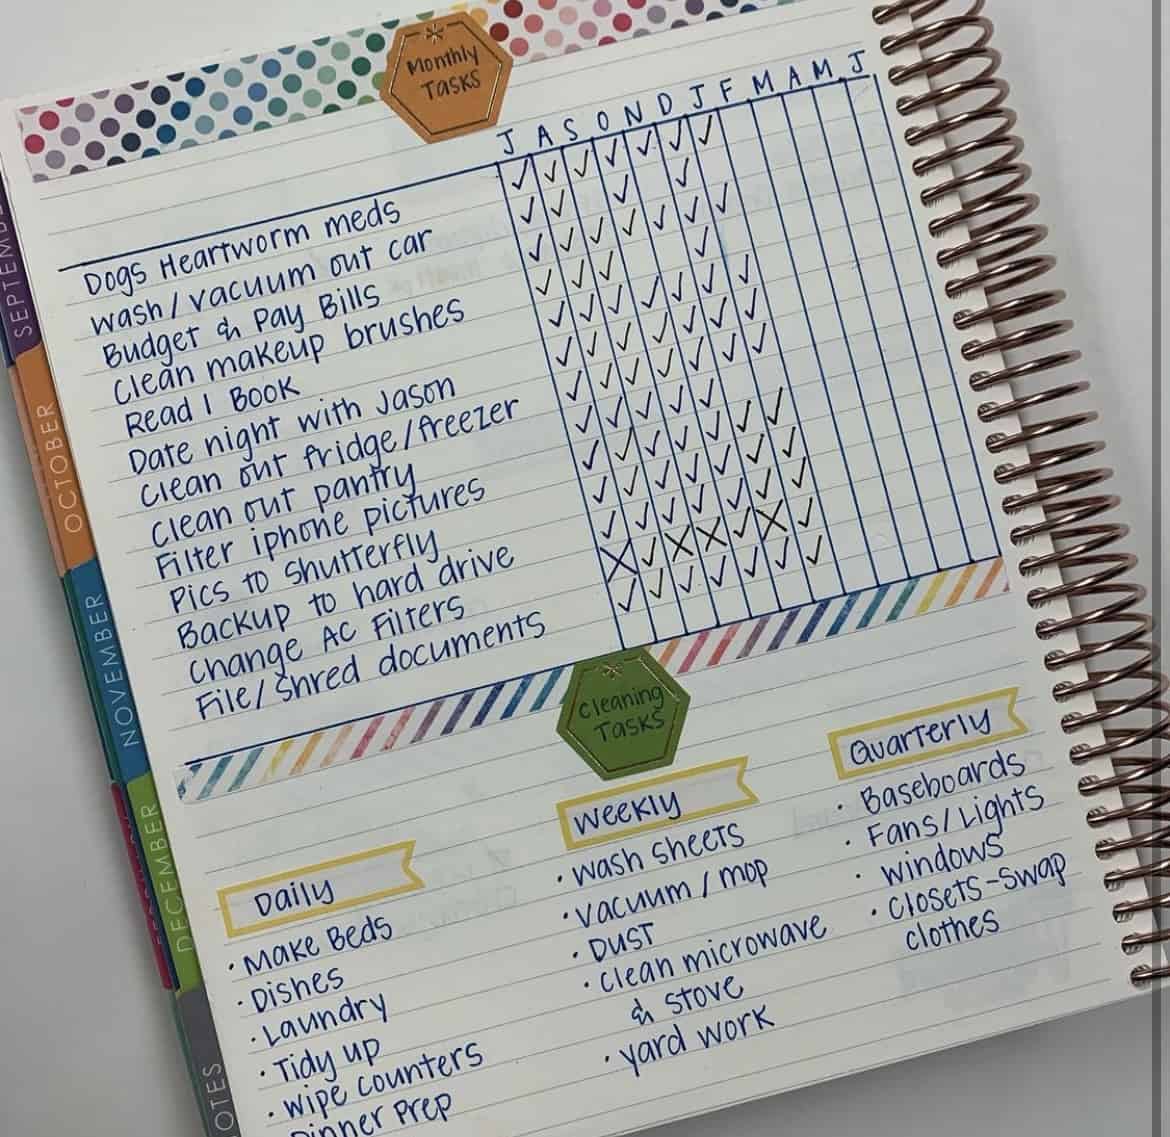 Monthly
Tasks
J A S O N D J F M A M J
Dogs Heartworm meds
wash/vacuum out car
Budget & Pay Bills
Clean makeup brushes
Read 1 Book
Date night with Jason
Clean out fridge/freezer
Clean out pantry
Filter iphone pictures
Pics to Shutterfly
Backup to hard drive
Change AC Filters
File/Shred documents
Cleaning
Tasks
Daily
• Make Beds
• Dishes
• Laundry
• Tidy up
• Wipe Counters
Dinner Prep
Weekly
• Wash Sheets
• Vacuum/mop
• Dust
• Clean microwave
& stove
• yard work
Quarterly
• Baseboards
• Fans/Lights
• Windows
• Closets-Swap
clothes
SEPTEMBE
OCTOBER
NOVEMBER
DECEMBER
OTES